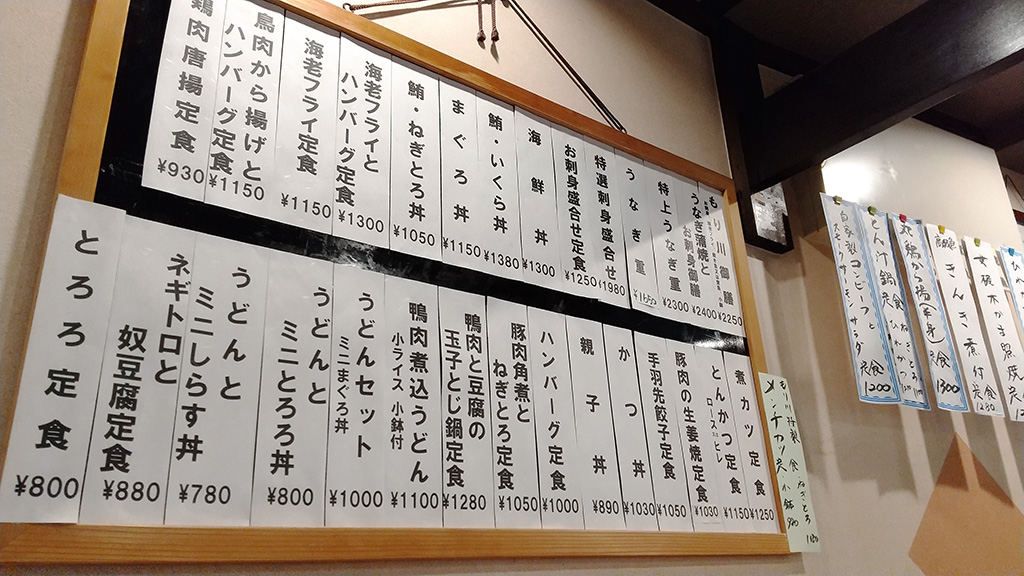 もり川御膳
¥2250
うなぎ蒲焼と
お刺身御膳
¥2400
特上うなぎ重
¥2300
うなぎ重
特選刺身盛合せ
¥1980
お刺身盛合せ定食
¥1250
海鮮丼
¥1300
鮪・いくら丼
¥1380
まぐろ丼
¥1150
鮪・ねぎとろ丼
¥1050
海老フライと
ハンバーグ定食
¥1300
海老フライ定食
¥1150
鳥肉から揚げと
ハンバーグ定食
¥1150
鶏肉唐揚定食
¥930
煮カツ定食
¥1250
とんかつ定食
ロース・ヒレ
¥1150
豚肉の生姜焼定食
¥1030
手羽先餃子定食
¥1050
かつ丼
¥1030
親子丼
¥890
ハンバーグ定食
¥1000
豚肉角煮と
ねぎとろ定食
¥1050
鴨肉と豆腐の
玉子とじ鍋定食
¥1280
鴨肉煮込うどん
小ライス 小鉢付
¥1100
うどんセット
ミニまぐろ丼
¥1000
うどんと
ミニとろろ丼
¥800
うどんと
ミニしらす丼
¥780
ネギトロと
奴豆腐定食
¥880
とろろ定食
¥800
きんき煮付
1280
1300
自家製コンビーフと
1200